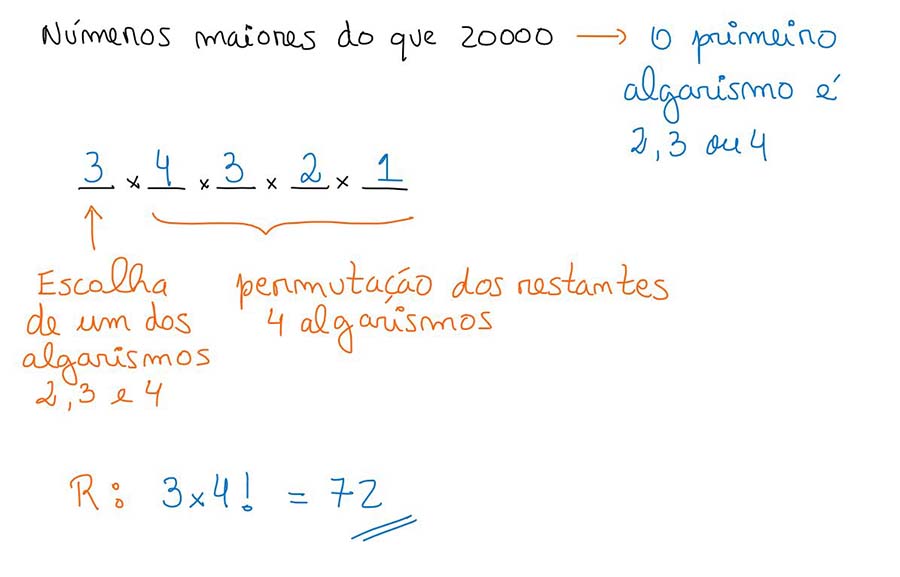 Números maiores do que 20000 → O primeiro
algarismo é
2, 3 ou 4
3 × 4 × 3 × 2 × 1
Escolha
de um dos
algarismos
2, 3 e 4
permutação dos restantes
4 algarismos
R: 3×4! = 72